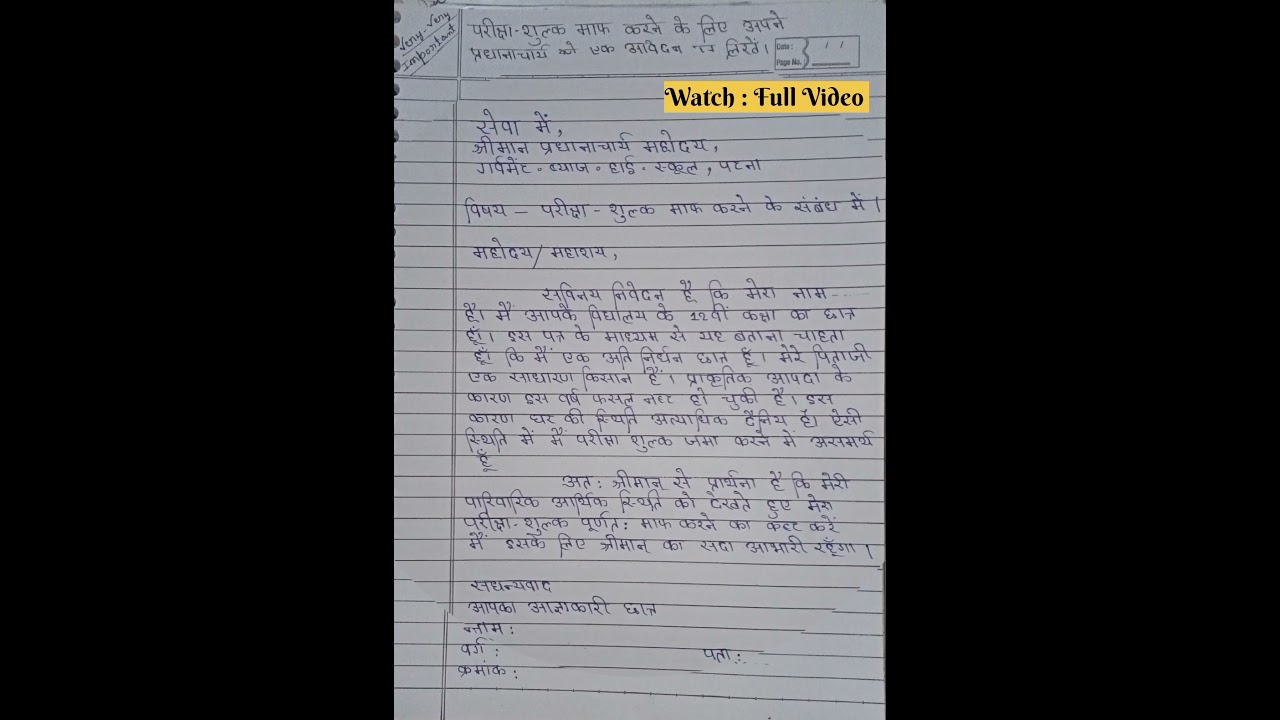 Very-Very
Important
परीक्षा-शुल्क माफ करने के लिए अपने
प्रधानाचार्य को एक आवेदन पत्र लिखें।
Date :
Page No.
Watch : Full Video
सेवा में,
श्रीमान प्रधानाचार्य महोदय,
गर्वमेंट ब्याज हाई स्कूल, पटना
विषय – परीक्षा-शुल्क माफ करने के संबंध में।
महोदय/महाशय,
सविनय निवेदन है कि मेरा नाम----
है। मैं आपके विद्यालय के 12वीं कक्षा का छात्र
हूँ। इस पत्र के माध्यम से यह बताना चाहता
हूँ कि मैं एक अति निर्धन छात्र हूँ। मेरे पिताजी
एक साधारण किसान हैं। प्राकृतिक आपदा के
कारण इस वर्ष फसल नष्ट हो चुकी है। इस
कारण घर की स्थिति अत्याधिक दैनिय है। ऐसी
स्थिति में मैं परीक्षा शुल्क जमा करने में असमर्थ
हूँ
अत: श्रीमान् से प्रार्थना है कि मेरी
पारिवारिक आर्थिक स्थिति को देखते हुए मेरा
परीक्षा-शुल्क पूर्णत: माफ करने का कष्ट करें
मैं इसके लिए श्रीमान् का सदा आभारी रहूँगा।
सधन्यवाद
आपका आज्ञाकारी छात्र
नाम :
वर्ग : पता :
क्रमांक :